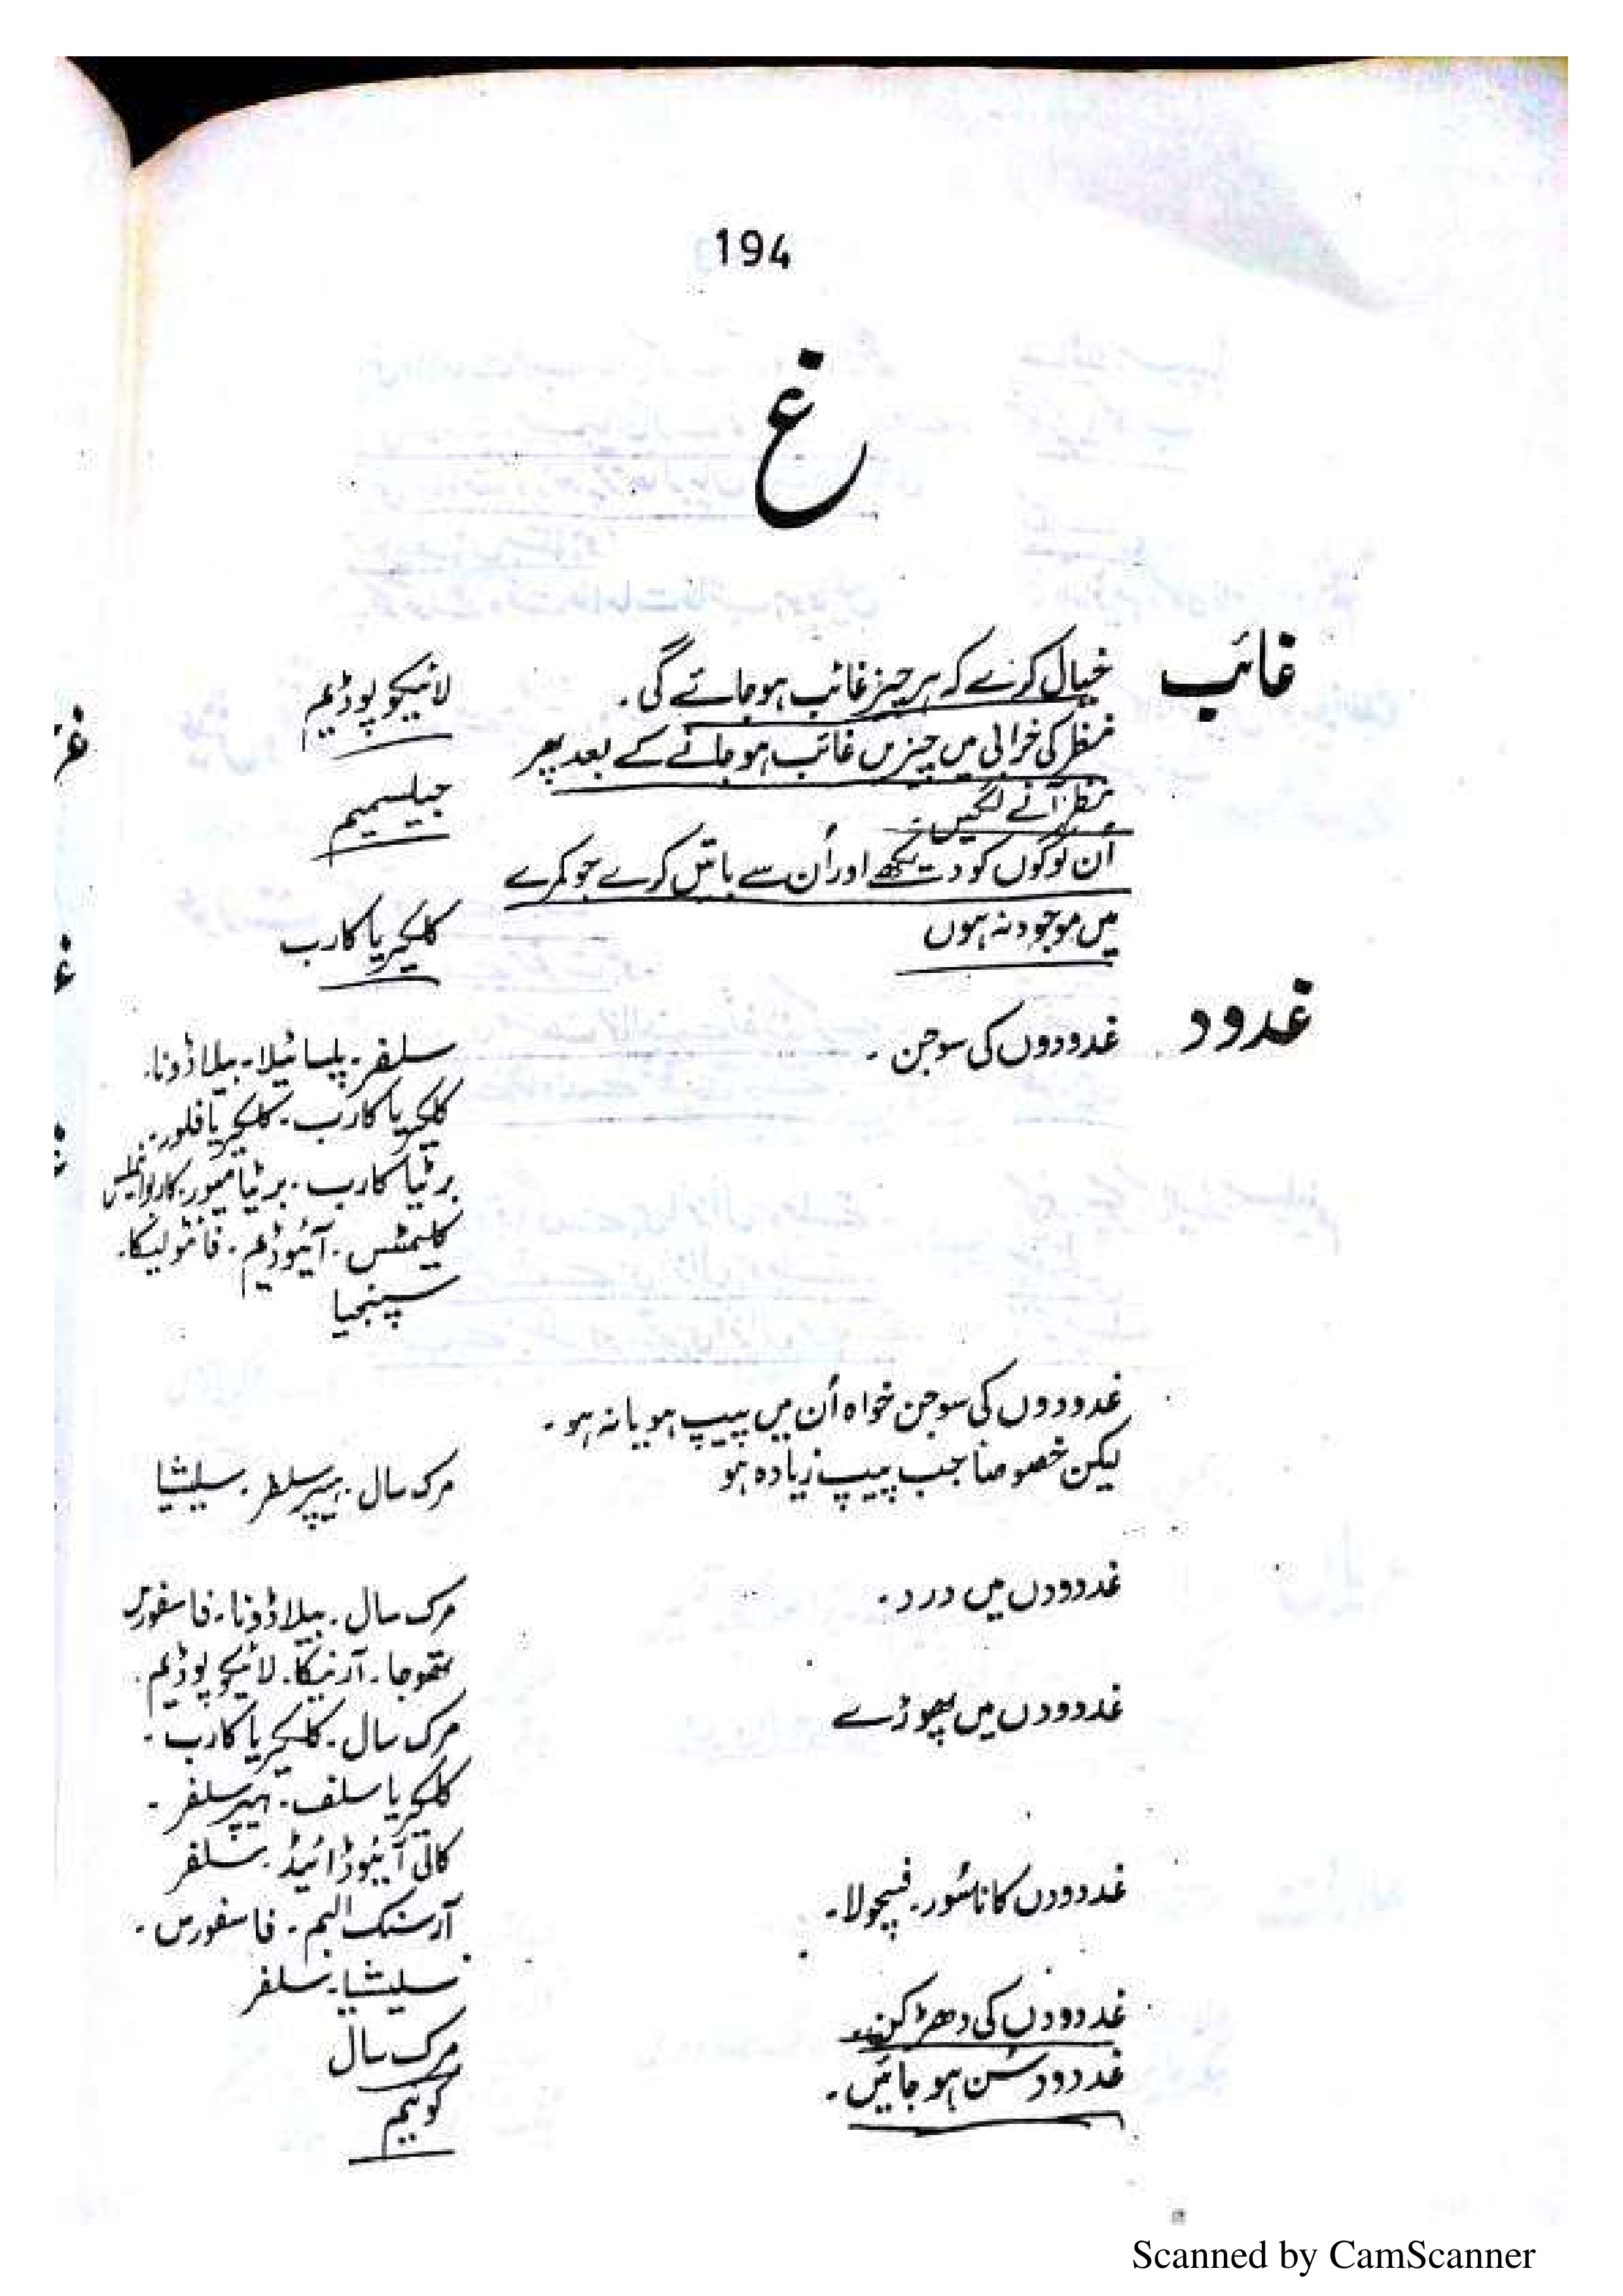 194
غ
غائب
خیال کرے کہ ہر چیز غائب ہو جائے گی۔
لائیکوپوڈیم
نظر کی خرابی میں چیزیں غائب ہو جانے کے بعد پھر
نظر آنے لگیں۔
جیلسیمیم
اُن لوگوں کو دیکھے اور اُن سے باتیں کرے جو کمرے
میں موجود نہ ہوں
کلکیریا کارب
غدود
غدودوں کی سوجن۔
سلفر۔ پلساٹیلا۔ بیلاڈونا۔
کلکیریا کارب۔ کلکیریا فلور۔
برٹیا کارب۔ برٹیا میور۔
کلیمٹس۔ آئیوڈیم۔ فائٹولیکا۔
سپنجیا
غدودوں کی سوجن خواہ اُن میں پیپ ہو یا نہ ہو۔
لیکن خصوصاً جب پیپ زیادہ ہو
مرک سال۔ ہیپر سلفر۔ سلیشیا
غدودوں میں درد۔
مرک سال۔ بیلاڈونا۔ فاسفورس
تھوجا۔ آرنیکا۔ لائیکوپوڈیم۔
غدودوں میں پھوڑے
مرک سال۔ کلکیریا کارب۔
کلکیریا سلف۔ ہیپر سلفر۔
کالی آئیوڈائیڈ۔ سلفر
غدودوں کا ناسُور۔ فسچولا۔
آرسنک البم۔ فاسفورس۔
سلیشیا۔ سلفر
غدودوں کی دھڑکن
مرک سال
غدود سُن ہو جائیں۔
کونیم
Scanned by CamScanner